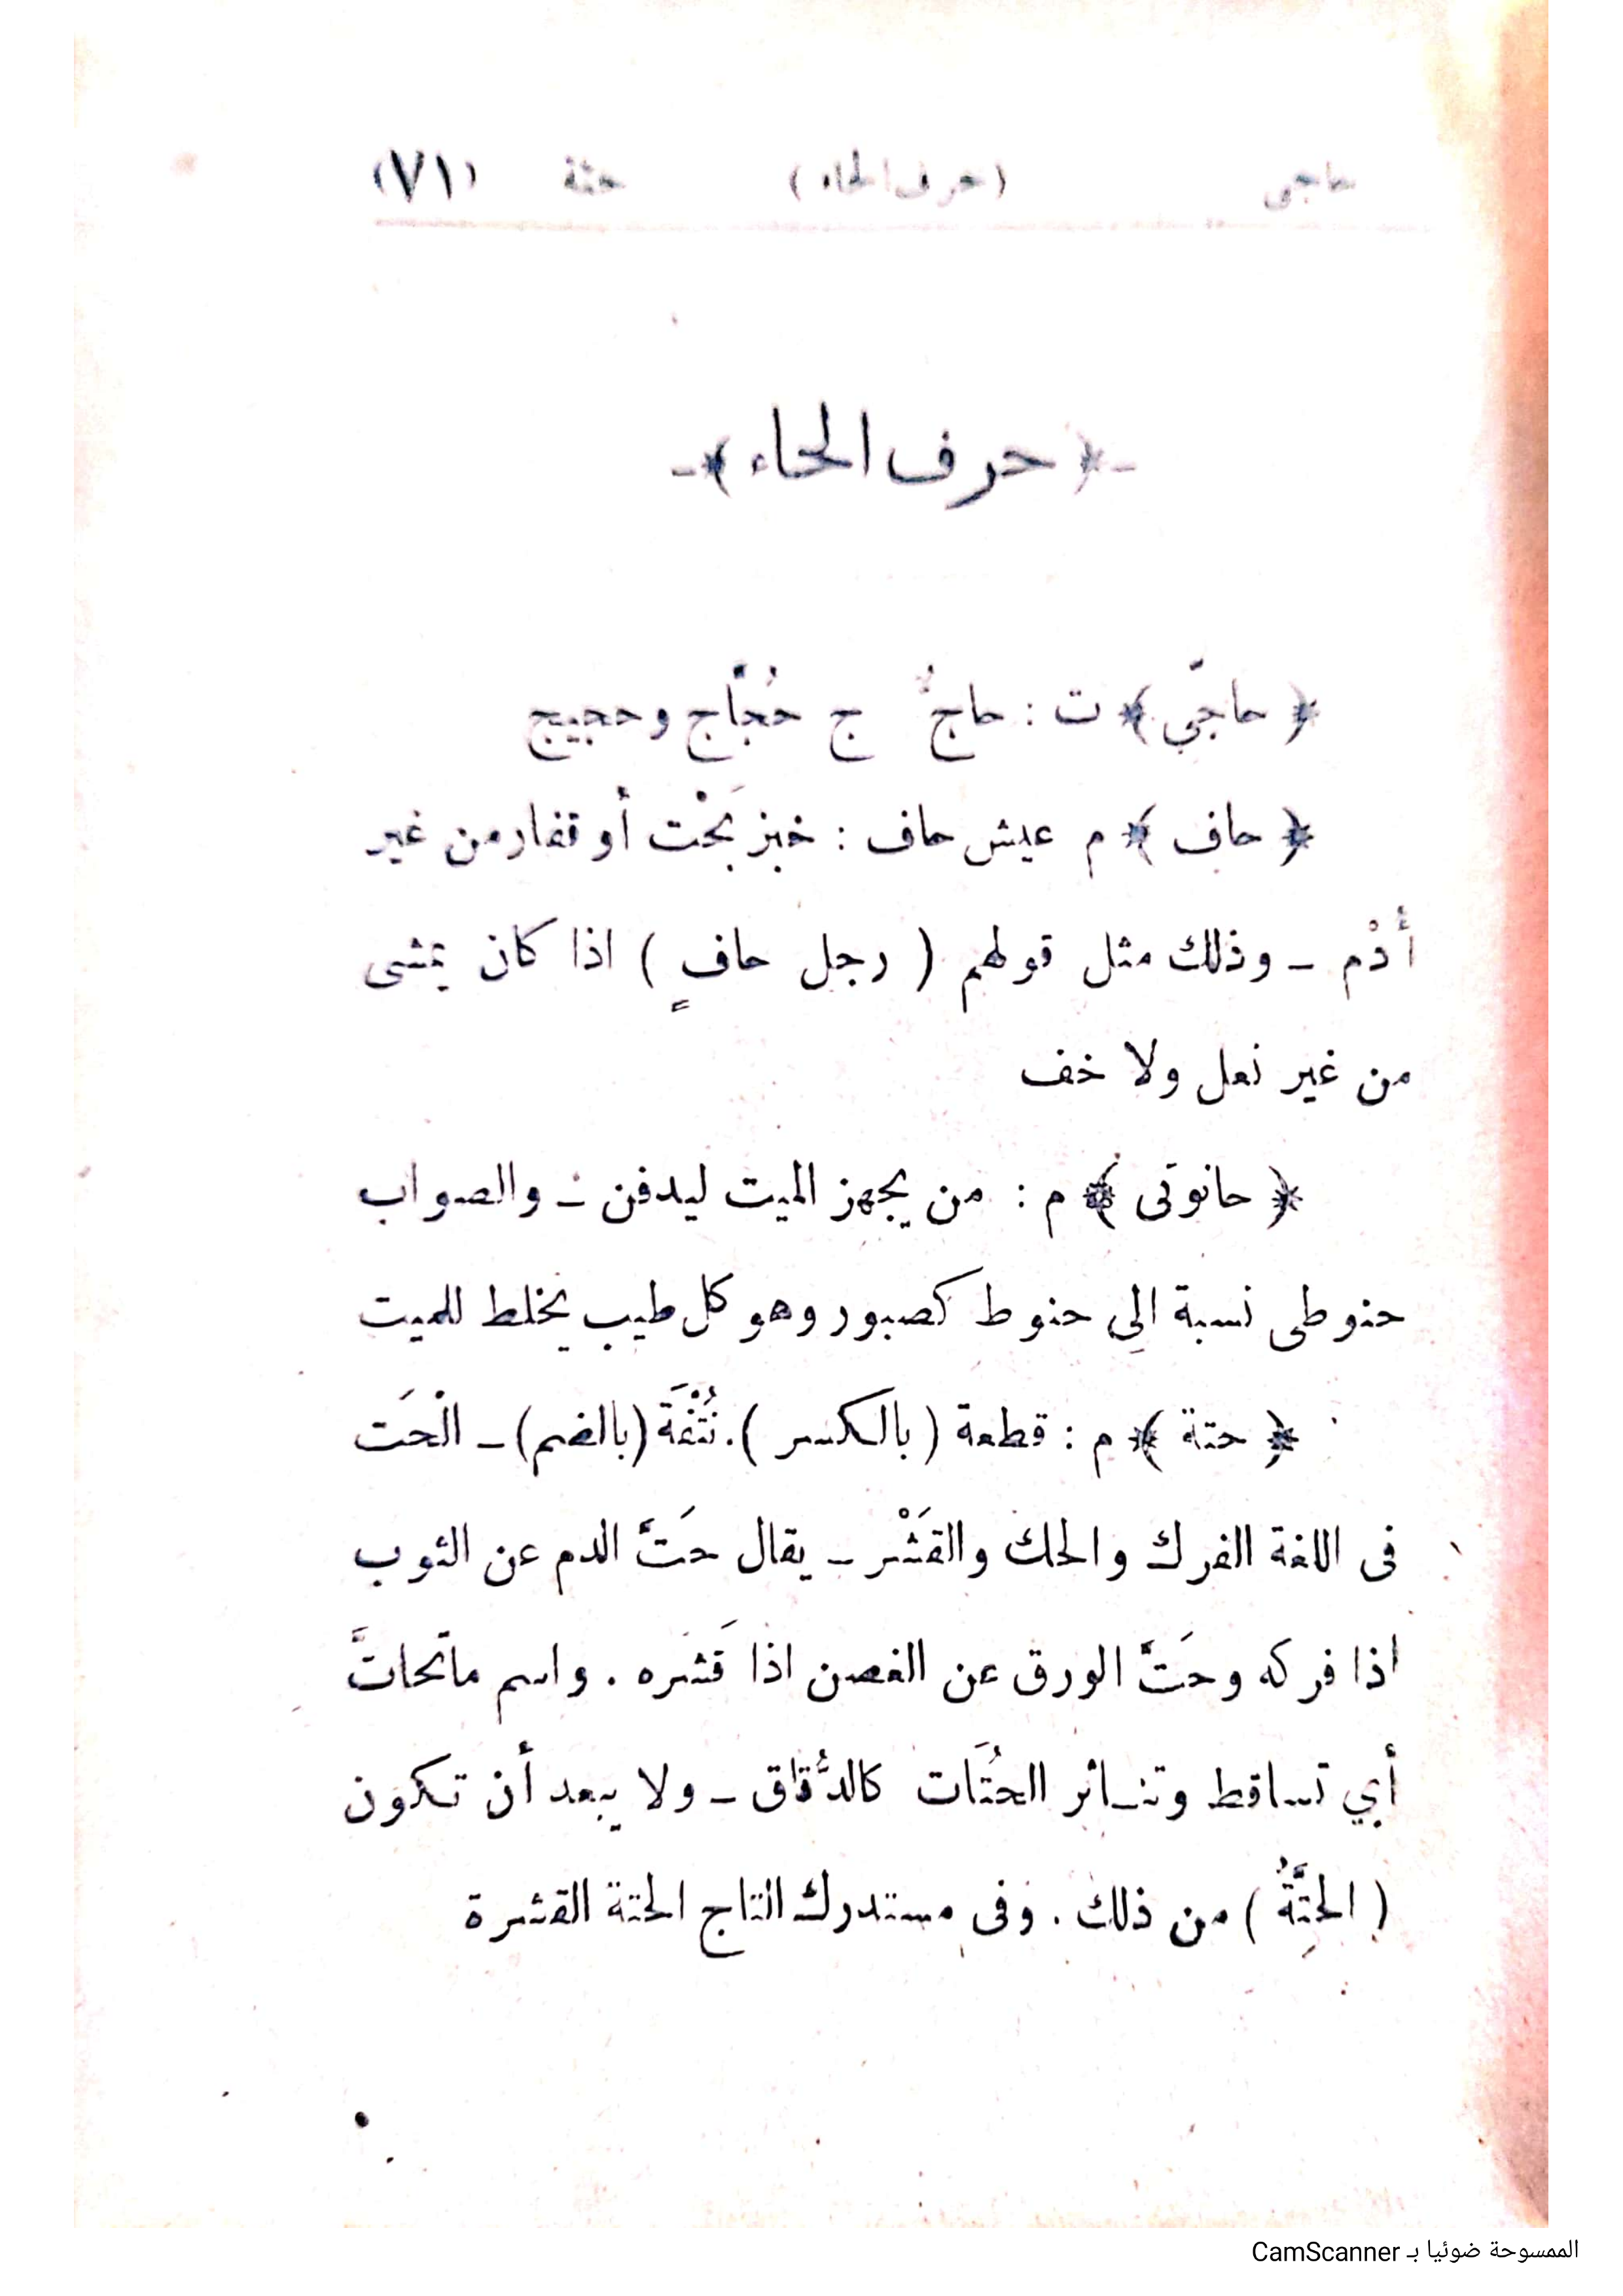 حاجى (حرف الحاء) حتة (٧١)
-﴿ حرف الحاء ﴾-
﴿ حاجّى ﴾ ت : حاجٌّ ج حُجَّاج وحجيج
﴿ حاف ﴾ م عيش حاف : خبز بَحْت أو قفار من غير
أُدْم ـ وذلك مثل قولهم ( رجل حافٍ ) اذا كان يمشى
من غير نعل ولا خف
﴿ حانوتى ﴾ م : من يجهز الميت ليدفن ـ والصواب
حنوطى نسبة الِى حنوط كصبور وهو كل طيب يخلط للميت
﴿ حتة ﴾ م : قطعة ( بالكسر ). نُتْفَة (بالضم) ـ الْحَت
فى اللغة الفرك والحك والقَشْر ـ يقال حَتَّ الدم عن الثوب
اذا فركه وحَتَّ الورق عن الغصن اذا قَشره . واسم ماتحاتَّ
أي تساقط وتناثر الحُتَات كالدُّقاق ـ ولا يبعد أن تكون
( الحِتَّةُ ) من ذلك . وفى مستدرك التاج الحتة القشرة
الممسوحة ضوئيا بـ CamScanner